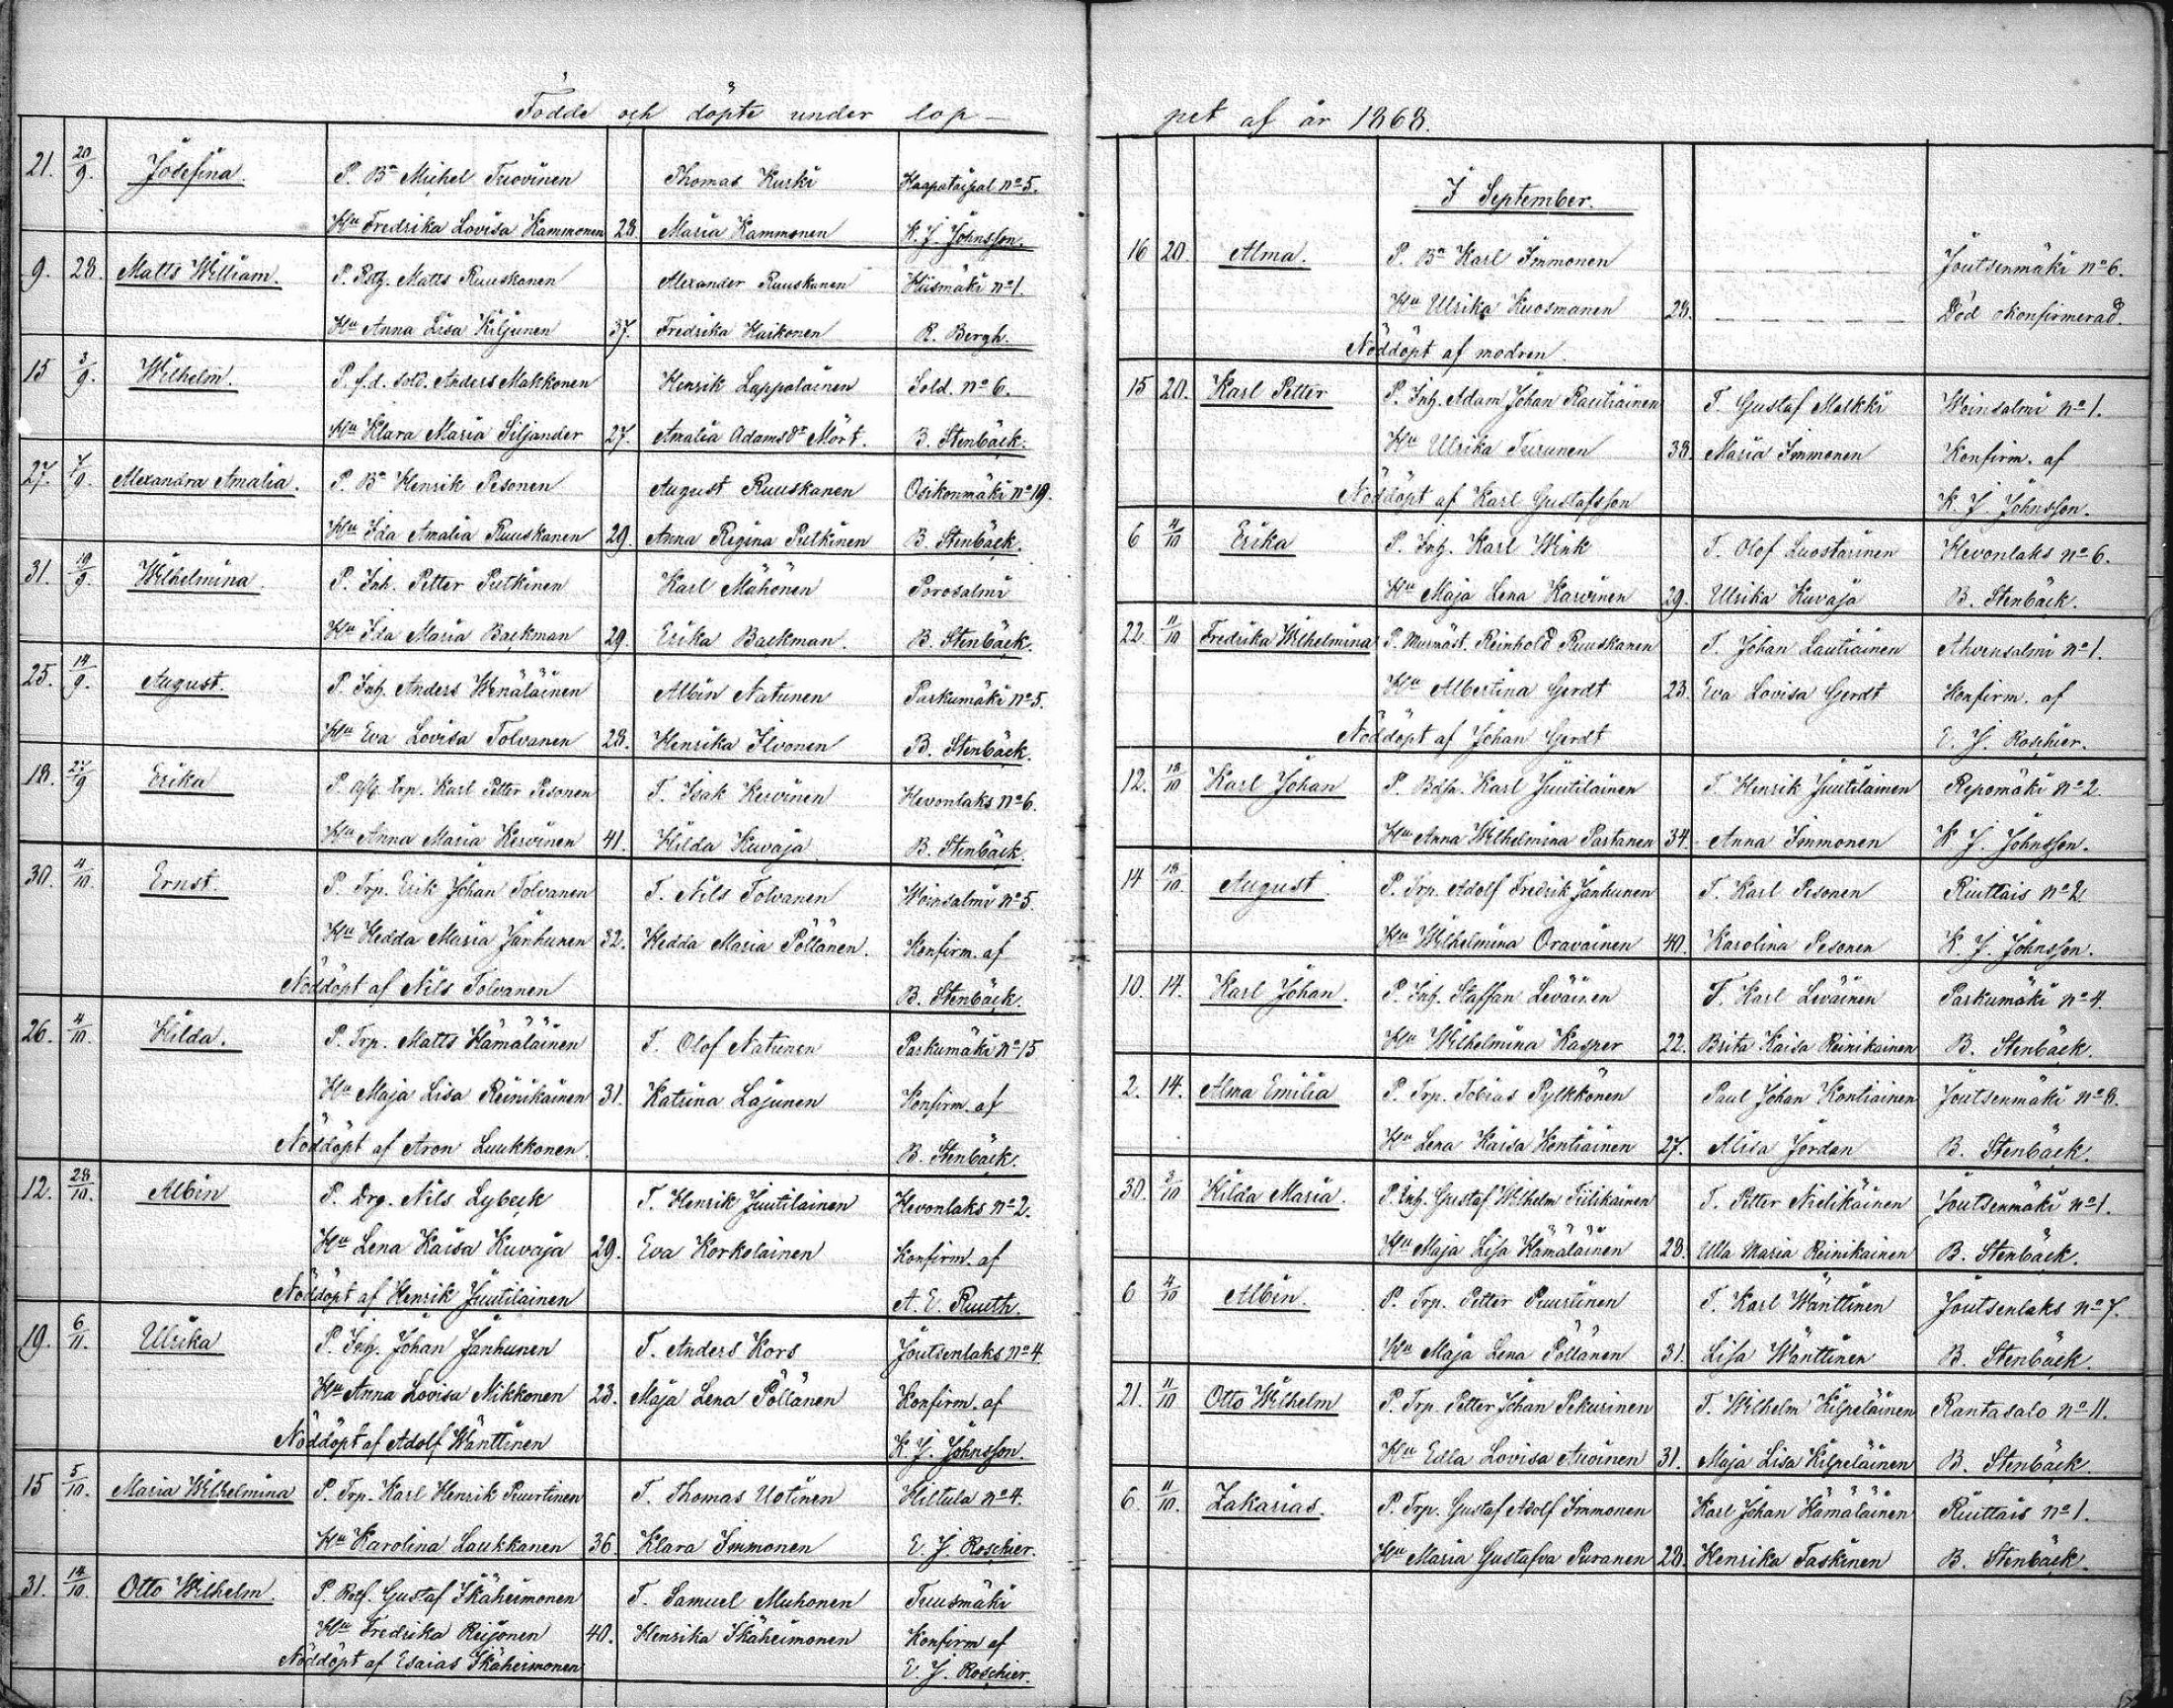 Födde och döpte under lop-
21. 20/9. Josefina. P. Bn Michel Tuovinen Thomas Kurki Haapataipal No 5.
Hu Fredrika Lovisa Kammonen 28. Maria Kammonen K. J. Johnsson.
9. 28. Matts William. P. Matts Ruuskanen Alexander Ruuskanen Hiismäki No 1.
Hu Anna Lisa Kiljunen 37. Fredrika Huikonen R. Bergh.
15 3/9. Wilhelm. P. f.d. sold. Anders Makkonen Henrik Lappalainen Sold. No 6.
Hu Klara Maria Siljander 27. Amalia Adamsdr Mört. B. Stenbäck.
27. 7/9. Alexandra Amalia. P. Bn Henrik Pesonen August Ruuskanen Osikonmäki No 19.
Hu Ida Amalia Ruuskanen 29. Anna Regina Putkinen B. Stenbäck.
31. 19/9 Wilhelmina. P. Inh. Petter Putkinen Karl Mähönen Porosalmi
Hu Ida Maria Backman 29. Erika Backman. B. Stenbäck.
25. 14/9. August. P. Inh. Anders Wenäläinen Albin Natunen Parkumäki No 5.
Hu Eva Lovisa Tolvanen 28. Henrika Ilvonen B. Stenbäck.
18. 27/9 Erika P. Trp. Karl Petter Pesonen T. Isak Kervinen Hevonlaks No 6.
Hu Anna Maria Kervinen 41. Hilda Kuvaja B. Stenbäck.
30. 4/10. Ernst. P. Trp. Erik Johan Tolvanen T. Nils Tolvanen Woinsalmi No 5.
Hu Hedda Maria Janhunen 32. Hedda Maria Pöllänen. Konfirm. af
Nöddöpt af Nils Tolvanen B. Stenbäck.
26. 4/10. Hilda. P. Trp. Matts Hämäläinen T. Olof Natunen Parkumäki No 15
Hu Maja Lisa Reinikainen 31. Katrina Lajunen Konfirm. af
Nöddöpt af Aron Luukkonen. B. Stenbäck.
12. 28/10. Albin P. Drg. Nils Lybeck T. Henrik Juutilainen Hevonlaks No 2.
Hu Lena Kaisa Kuvaja 29. Eva Korkolainen Konfirm. af
Nöddöpt af Henrik Juutilainen A. E. Ruuth.
19. 6/11. Ulrika P. Inh. Johan Janhunen T. Anders Kors Joutsenlaks No 4.
Hu Anna Lovisa Mikkonen 23. Maja Lena Pöllänen Konfirm. af
Nöddöpt af Adolf Wänttinen K. J. Johnsson.
15 5/10. Maria Wilhelmina P. Trp. Karl Henrik Puurtinen T. Thomas Uotinen Hiltula No 4.
Hu Karolina Laukkanen 36. Klara Immonen E. J. Roschier.
31. 14/10. Otto Wilhelm. P. Gustaf Ikäheimonen T. Samuel Muhonen Tuusmäki
Hu Fredrika Reijonen 40. Henrika Ikäheimonen Konfirm af
Nöddöpt af Esaias Ikäheimonen E. J. Roschier.
pet af år 1868.
I September.
16 20. Alma. P. Bn Karl Immonen Joutsenmäki No 6.
Hu Ulrika Kuosmanen 28. Död okonfirmerad.
Nöddöpt af modren.
15 20. Karl Petter P. Inh. Adam Johan Rautiainen T. Gustaf Malkki Woinsalmi No 1.
Hu Ulrika Turunen 38. Maria Immonen Konfirm. af
Nöddöpt af Karl Gustafsson K. J. Johnsson.
6 4/10 Erika P. Inh. Karl Wink T. Olof Luostarinen Hevonlaks No 6.
Hu Maja Lena Karvinen 29. Ulrika Kuvaja B. Stenbäck.
22. 11/10 Fredrika Wilhelmina P. Murmäst. Reinhold Ruuskanen T. Johan Lautiainen Ahvensalmi No 1.
Hu Albertina Gerdt 23. Eva Lovisa Gerdt Konfirm. af
Nöddöpt af Johan Gerdt E. J. Roschier.
12. 18/10 Karl Johan P. Karl Juutilainen T. Henrik Juutilainen Repomäki No 2.
Hu Anna Wilhelmina Partanen 34. Anna Immonen K. J. Johnsson.
14 18/10. August. P. Trp. Adolf Fredrik Janhunen T. Karl Pesonen Riuttais No 2.
Hu Wilhelmina Oravainen 40. Karolina Pesonen K. J. Johnsson.
10. 14. Karl Johan. P. Inh. Staffan Leväinen T. Karl Leväinen Parkumäki No 4.
Hu Wilhelmina Kasper 22. Brita Kaisa Reinikainen B. Stenbäck.
2. 14. Alma Emilia P. Trp. Tobias Pylkkönen Paul Johan Kontiainen Joutsenmäki No 8.
Hu Lena Kaisa Kontiainen 27. Alisa Jordan B. Stenbäck.
30. 3/10 Hilda Maria. P. Inh. Gustaf Wilhelm Tiilikainen T. Petter Nielikäinen Joutsenmäki No 1.
Hu Maja Lisa Hämäläinen 28. Ulla Maria Reinikainen B. Stenbäck.
6 4/10 Albin. P. Trp. Petter Puurtinen T. Karl Wänttinen Joutsenlaks No 7.
Hu Maja Lena Pöllänen 31. Lisa Wänttinen B. Stenbäck.
21. 11/10 Otto Wilhelm P. Trp. Petter Johan Pekurinen T. Wilhelm Kilpeläinen Rantasalo No 11.
Hu Edla Lovisa Auvinen 31. Maja Lisa Kilpeläinen B. Stenbäck.
6. 11/10. Zakarias. P. Trp. Gustaf Adolf Immonen Karl Johan Hämäläinen Riuttais No 1.
Hu Maria Gustafva Puranen 28. Henrika Taskinen B. Stenbäck.